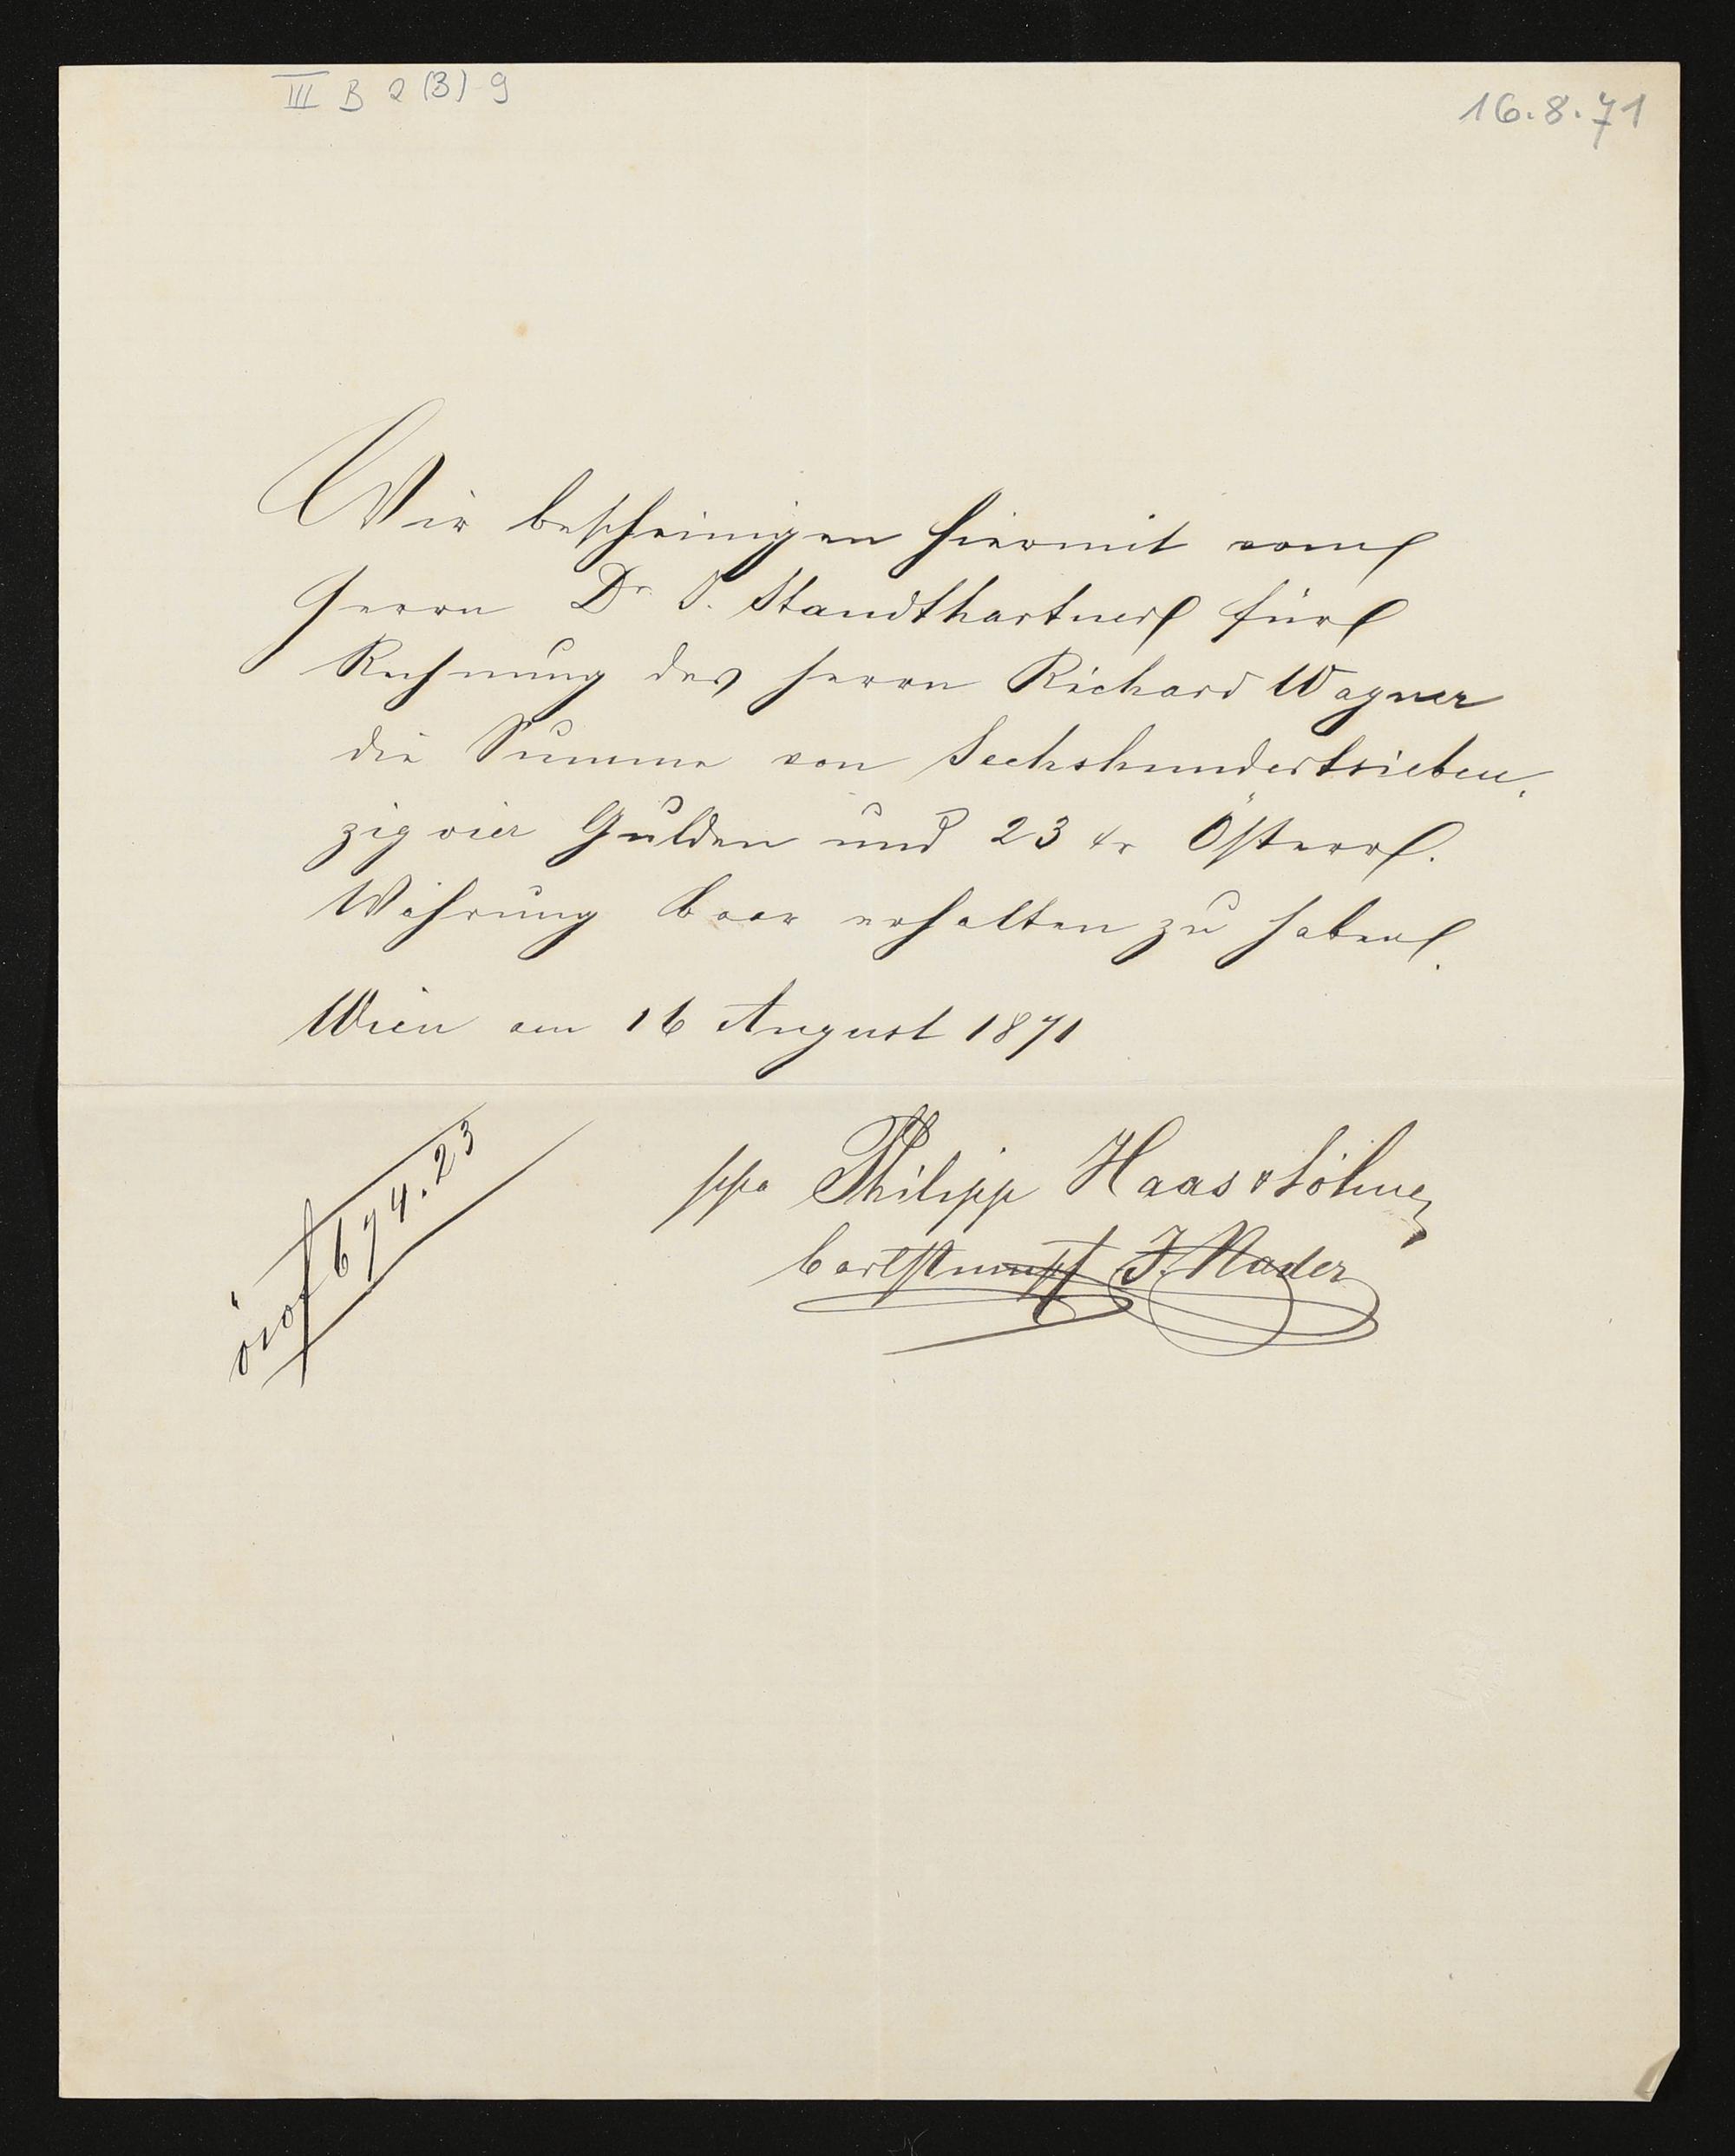 III B 2 (3) 9
16.8.71
Wir bescheinigen hiermit vom
Herrn Dr. J. Standthartner für
Rechnung des Herrn Richard Wagner
die Summe von Sechshundertsieben,
zig vier Gulden und 23 kr Österr.
Währung baar erhalten zu haben.
Wien am 16 August 1871
ppa Philipp Haas & Söhne
Carl Stumpf J. Nader
674.23